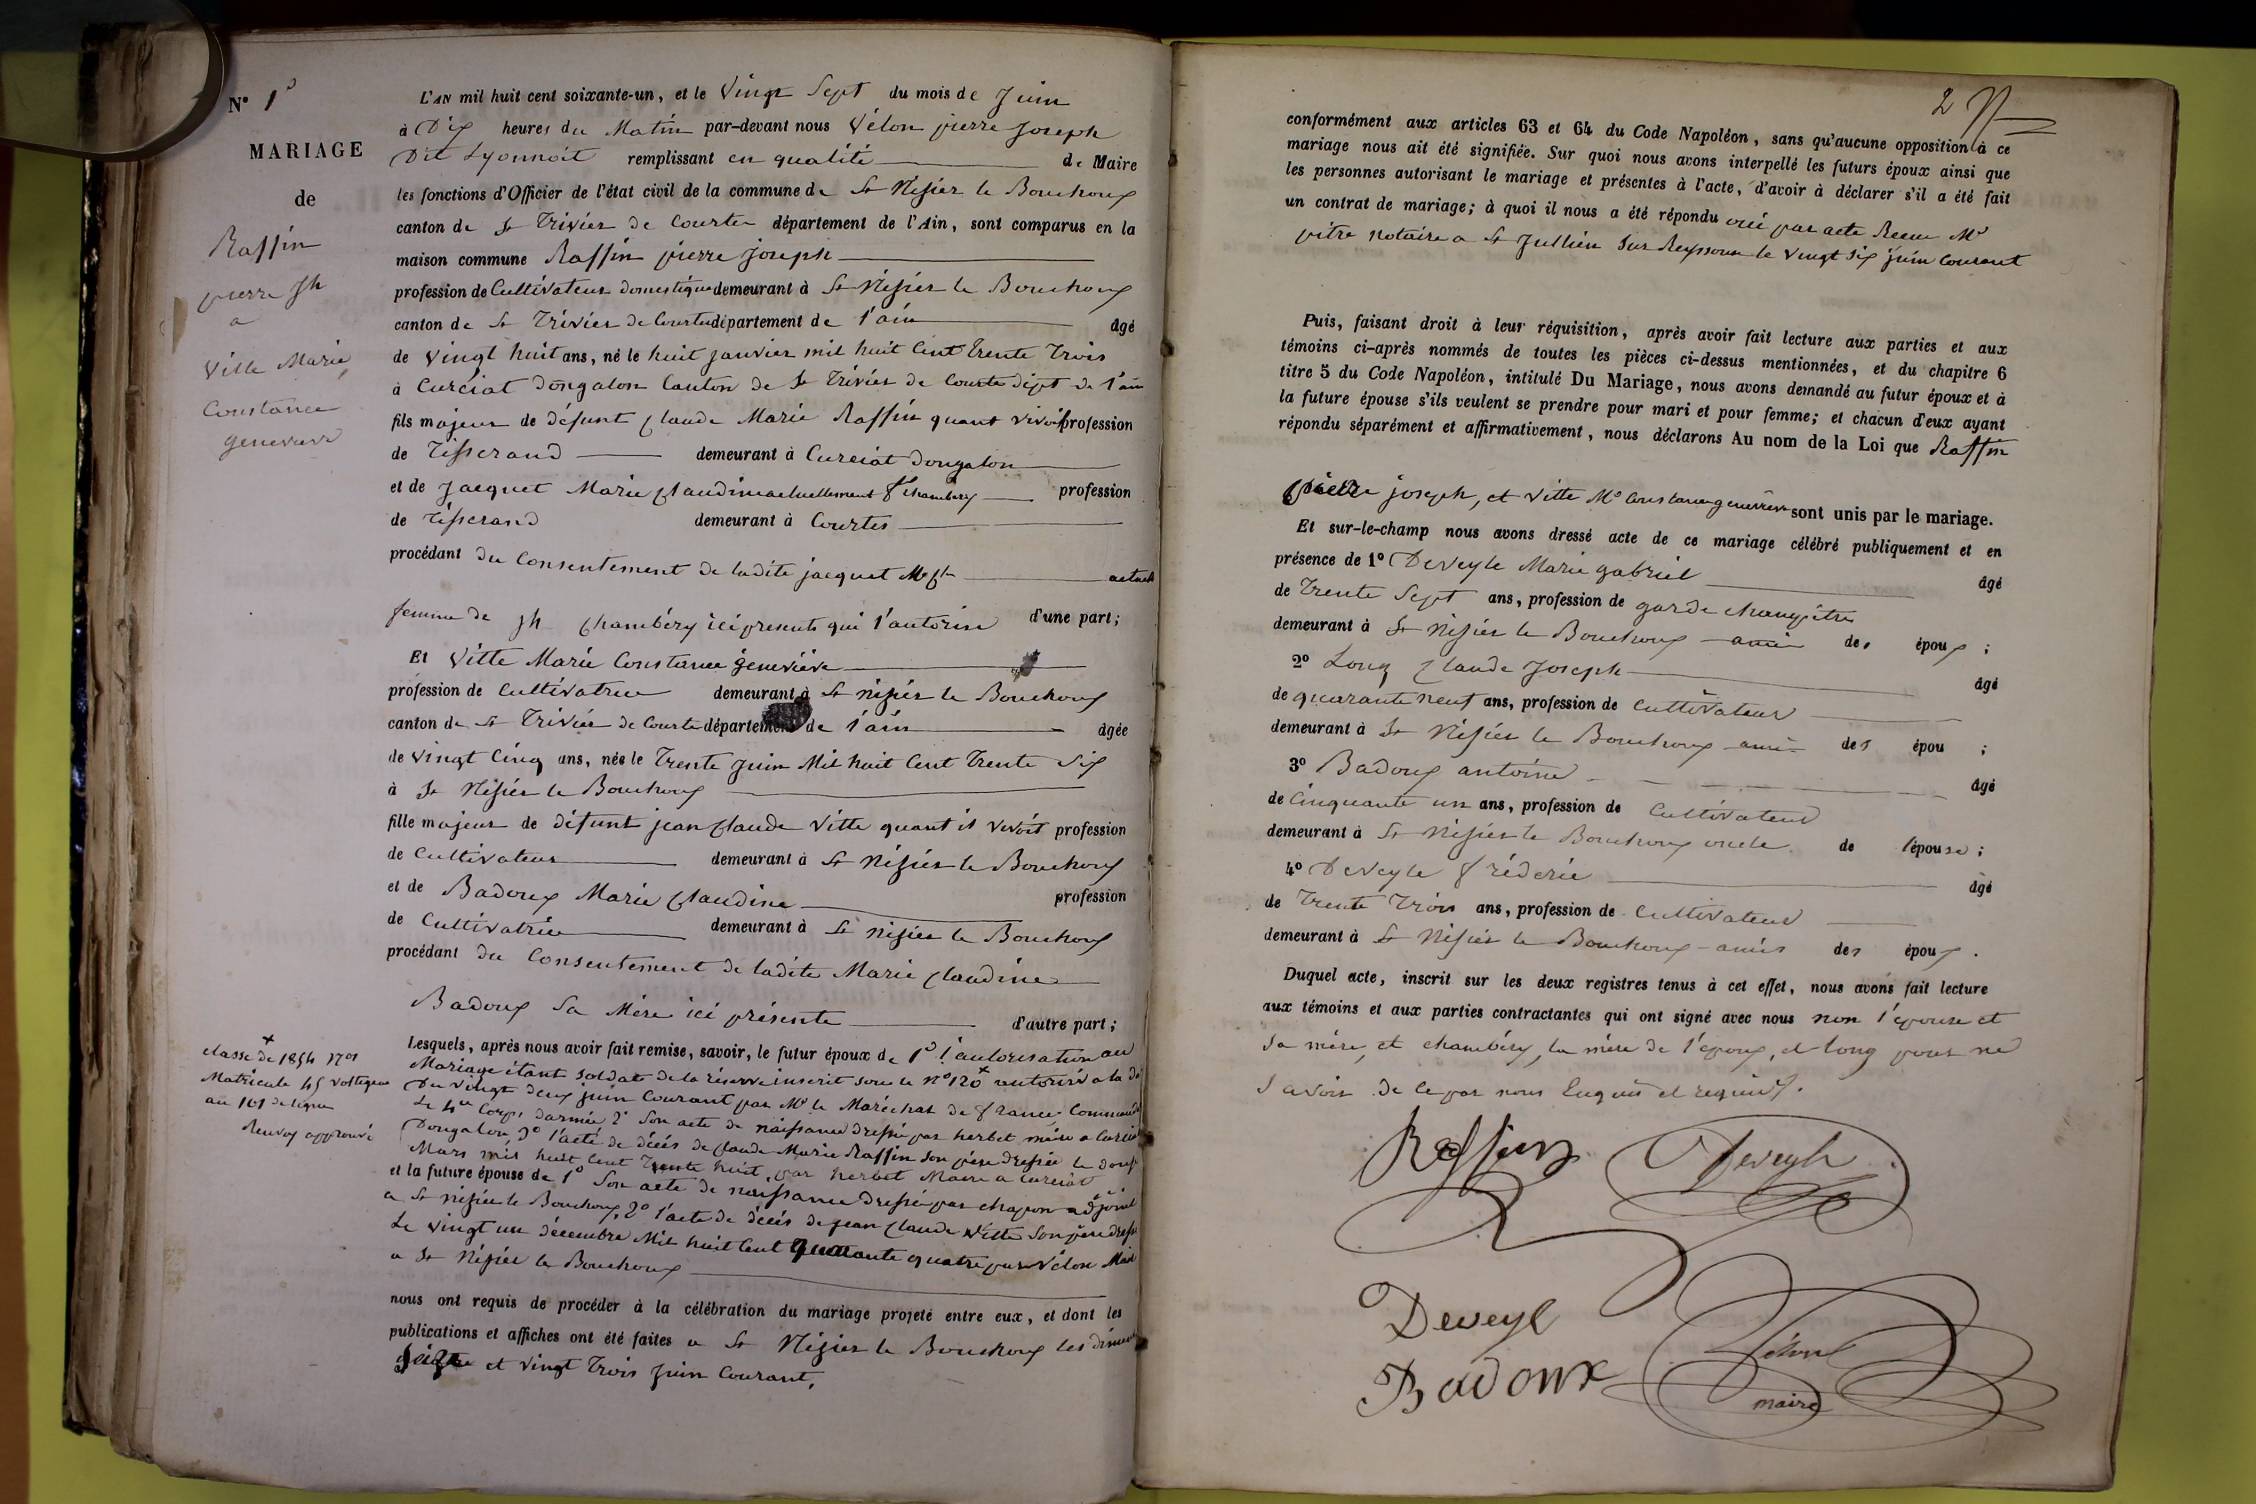 N° 1°
MARIAGE
de
Raffin
pierre Jh
a
Vitte Marie
Constance
genevieve
L'AN mil huit cent soixante-un, et le Vingt Sept du mois de Juin
à Dix heures du Matin par-devant nous Vélon pierre Joseph
Dit Lyonnoit remplissant en qualité de Maire
les fonctions d'Officier de l'état civil de la commune de St Nizier le Bouchoux
canton de St Trivier de Courtes département de l'Ain, sont comparus en la
maison commune Raffin pierre Joseph
profession de Cultivateur domestique demeurant à St Nizier le Bouchoux
canton de St Trivier de Courtes département de l'ain âgé
de vingt huit ans, né le huit janvier mil huit Cent Trente Trois
à Curciat dongalon Canton de St Trivier de Courte dépt de l'ain
fils majeur de défunt Claude Marie Raffin quant vivoit profession
de Tisserand demeurant à Curciat dongalon
et de Jacquet Marie Claudine actuellement fe Chambéry profession
de Tisserand demeurant à Courtes
procédant du Consentement de ladite jacquet Me Cl actuel
femme de Jh Chambéry ici présente qui l'autorise d'une part;
Et Vitte Marie Constance geneviève
profession de Cultivatrice demeurant à St Nizier le Bouchoux
canton de St Trivier de Courte département de l'ain âgée
de vingt Cinq ans, née le Trente Juin Mil huit Cent Trente Six
à St Nizier le Bouchoux
fille majeur de défunt jean Claude Vitte quant il vivoit profession
de Cultivateur demeurant à St Nizier le Bouchoux
et de Badoux Marie Claudine profession
de Cultivatrice demeurant à St Nizier le Bouchoux
procédant du Consentement de ladite Marie Claudine
Badoux Sa Mère ici présente d'autre part;
Lesquels, après nous avoir fait remise, savoir, le futur époux de 1° l'autorisation au
Mariage étant soldat de la réserve inscrit sous le n° 120 + autorisé a la de
Du vingt deux juin Courant par Mr le Maréchal de france Command
Le 4e Corps darmée 2° Son acte de naissance dressé par herbet mere a Curciat
Dongalon, 3° l'acte de décés de Claude Marie Raffin Son père dressée le douze
Mars mil huit Cent Trente huit, par herbet Maire a Curciat
et la future épouse de 1° Son acte de naissance dressé par chapon adjoint
a St Nizier le Bouchoux, 2° l'acte de décés de jean Claude Vitte Son père dressé
Le vingt un décembre Mil huit Cent Quarante quatre par Vélon Mair
a St Nizier le Bouchoux
+
classe de 1854
Matricule 45 voltigeur
au 101 de ligne
Renvoy approuvé
nous ont requis de procéder à la célébration du mariage projeté entre eux, et dont les
publications et affiches ont été faites a St Nizier le Bouchoux les diman
seize et vingt Trois Juin Courant,
2
conformément aux articles 63 et 64 du Code Napoléon, sans qu'aucune opposition à ce
mariage nous ait été signifiée. Sur quoi nous avons interpellé les futurs époux ainsi que
les personnes autorisant le mariage et présentes à l'acte, d'avoir à déclarer s'il a été fait
un contrat de mariage; à quoi il nous a été répondu oui par acte Recu Me
pitre notaire a St Jullien Sur Reyssouze le Vingt Six juin Courant
Puis, faisant droit à leur réquisition, après avoir fait lecture aux parties et aux
témoins ci-après nommés de toutes les pièces ci-dessus mentionnées, et du chapitre 6
titre 5 du Code Napoléon, intitulé Du Mariage, nous avons demandé au futur époux et à
la future épouse s'ils veulent se prendre pour mari et pour femme; et chacun d'eux ayant
répondu séparément et affirmativement, nous déclarons Au nom de la Loi que Raffin
pierre joseph, et Vitte Me Constance genevieve sont unis par le mariage.
Et sur-le-champ nous avons dressé acte de ce mariage célébré publiquement et en
présence de 1° Deveyle Marie gabriel âgé
de Trente Sept ans, profession de garde champêtre
demeurant à St Nizier le Bouchoux ami des époux ;
2° Long Claude Joseph âgé
de quarante neuf ans, profession de Cultivateur
demeurant à St Nizier le Bouchoux ami des épou ;
3° Badoux antoine âgé
de Cinquante un ans, profession de Cultivateur
demeurant à St Nizier le Bouchoux oncle de l'épouse ;
4° Deveyle fréderic âgé
de Trente Trois ans, profession de Cultivateur
demeurant à St Nizier le Bouchoux amis des époux .
Duquel acte, inscrit sur les deux registres tenus à cet effet, nous avons fait lecture
aux témoins et aux parties contractantes qui ont signé avec nous non l'épouse et
Sa mère, et chambéry, la mère de l'époux, et long pour ne
Savoir de ce par nous Enquis et requis.
Raffin Deveyle
Deveyl
Vélon
Badoux
maire